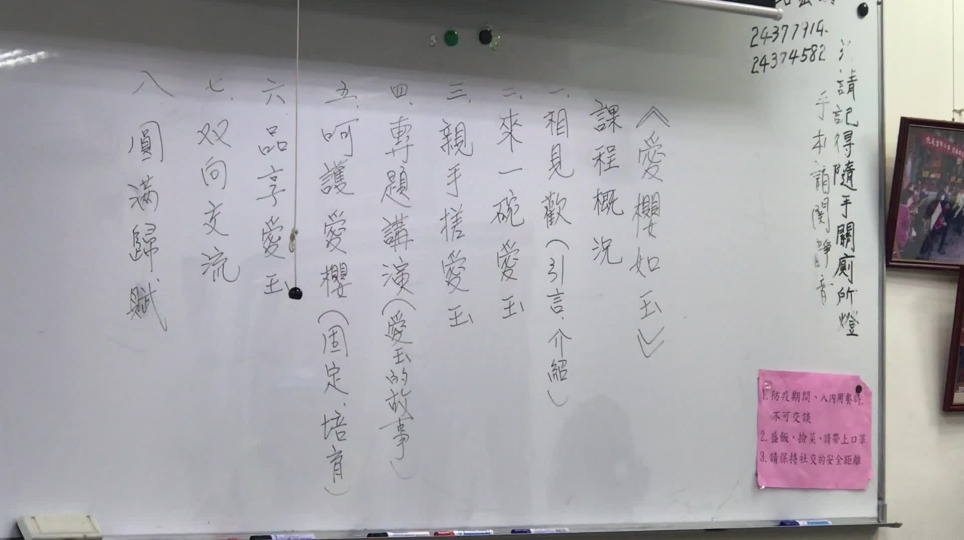 24377914
24374582
請記得隨手關廁所燈
手本請關靜音
《愛櫻如玉》
課程概況
一.相見歡(引言.介紹)
二.來一碗愛玉
三.親手搓愛玉
四.專題講演(愛玉的故事)
五.呵護愛櫻(固定.培育)
六.品享愛玉
七.双向交流
八.圓滿歸賦
1.防疫期間,入內用餐時,
不可交談
2.盛飯、撿菜,請帶上口罩
3.請保持社交的安全距離